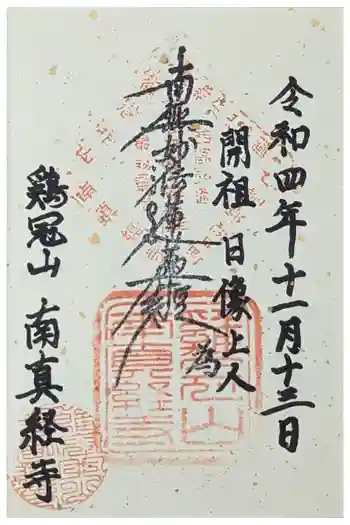 令和四年十一月十三日
開祖日像上人
為
南無妙法蓮華経
鶏冠山 南真経寺